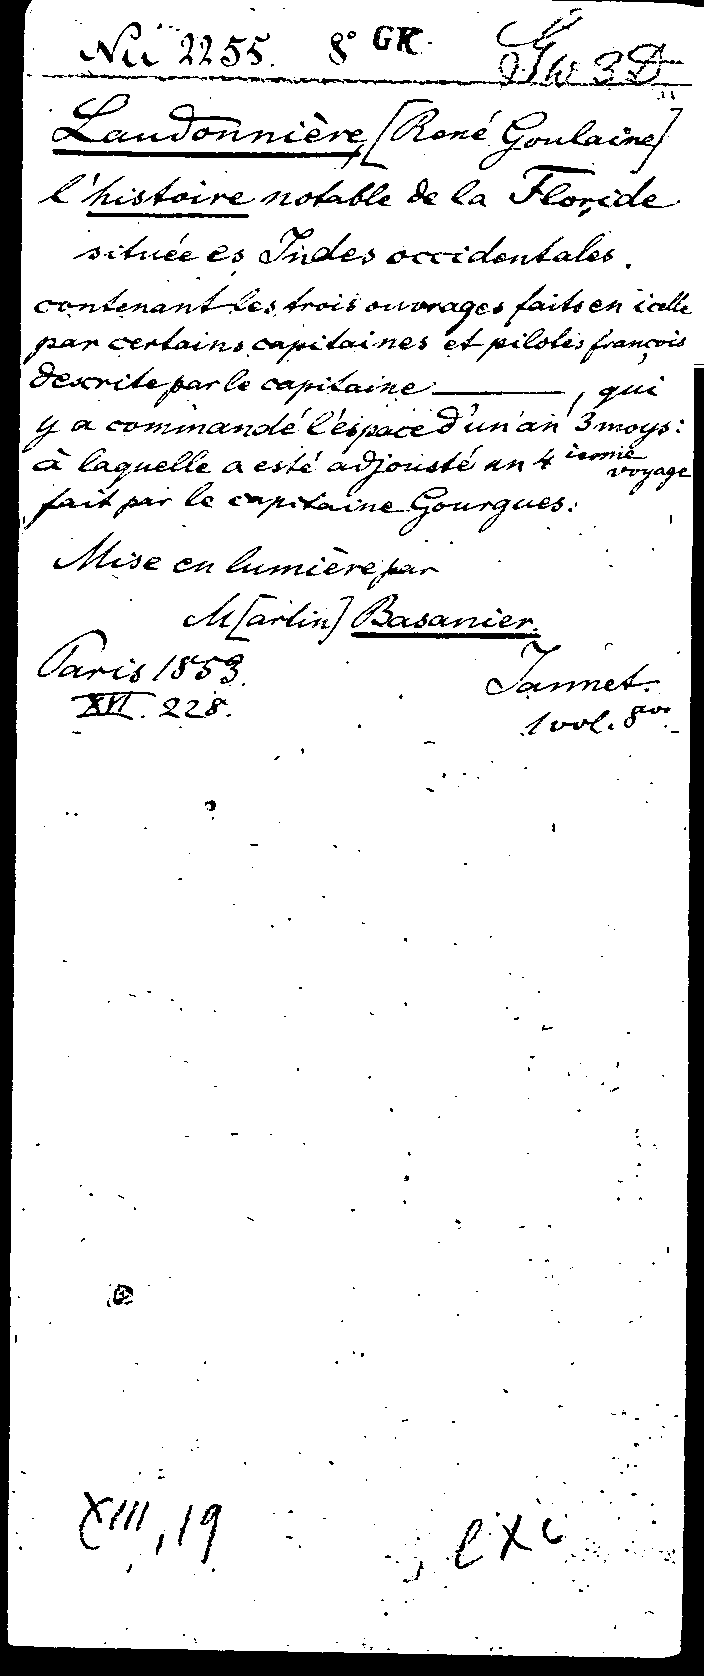 Nu 2255. 8° GK.
Laudonnière, [René Goulaine]
l'histoire notable de la Floride
située es Indes occidentales.
contenant les trois ouvrages faits en icelle
par certains capitaines et pilotes françois
descrite par le capitaine ———, qui
y a commandé l'espace d'un an 3 moys:
à laquelle a esté adjousté un 4 iesme voyage
fait par le capitaine Gourgues:
Mise en lumière par
M[artin] Basanier.
Paris 1853. Jannet.
XVI. 228. 1 vol. 8vo
XIII, 19